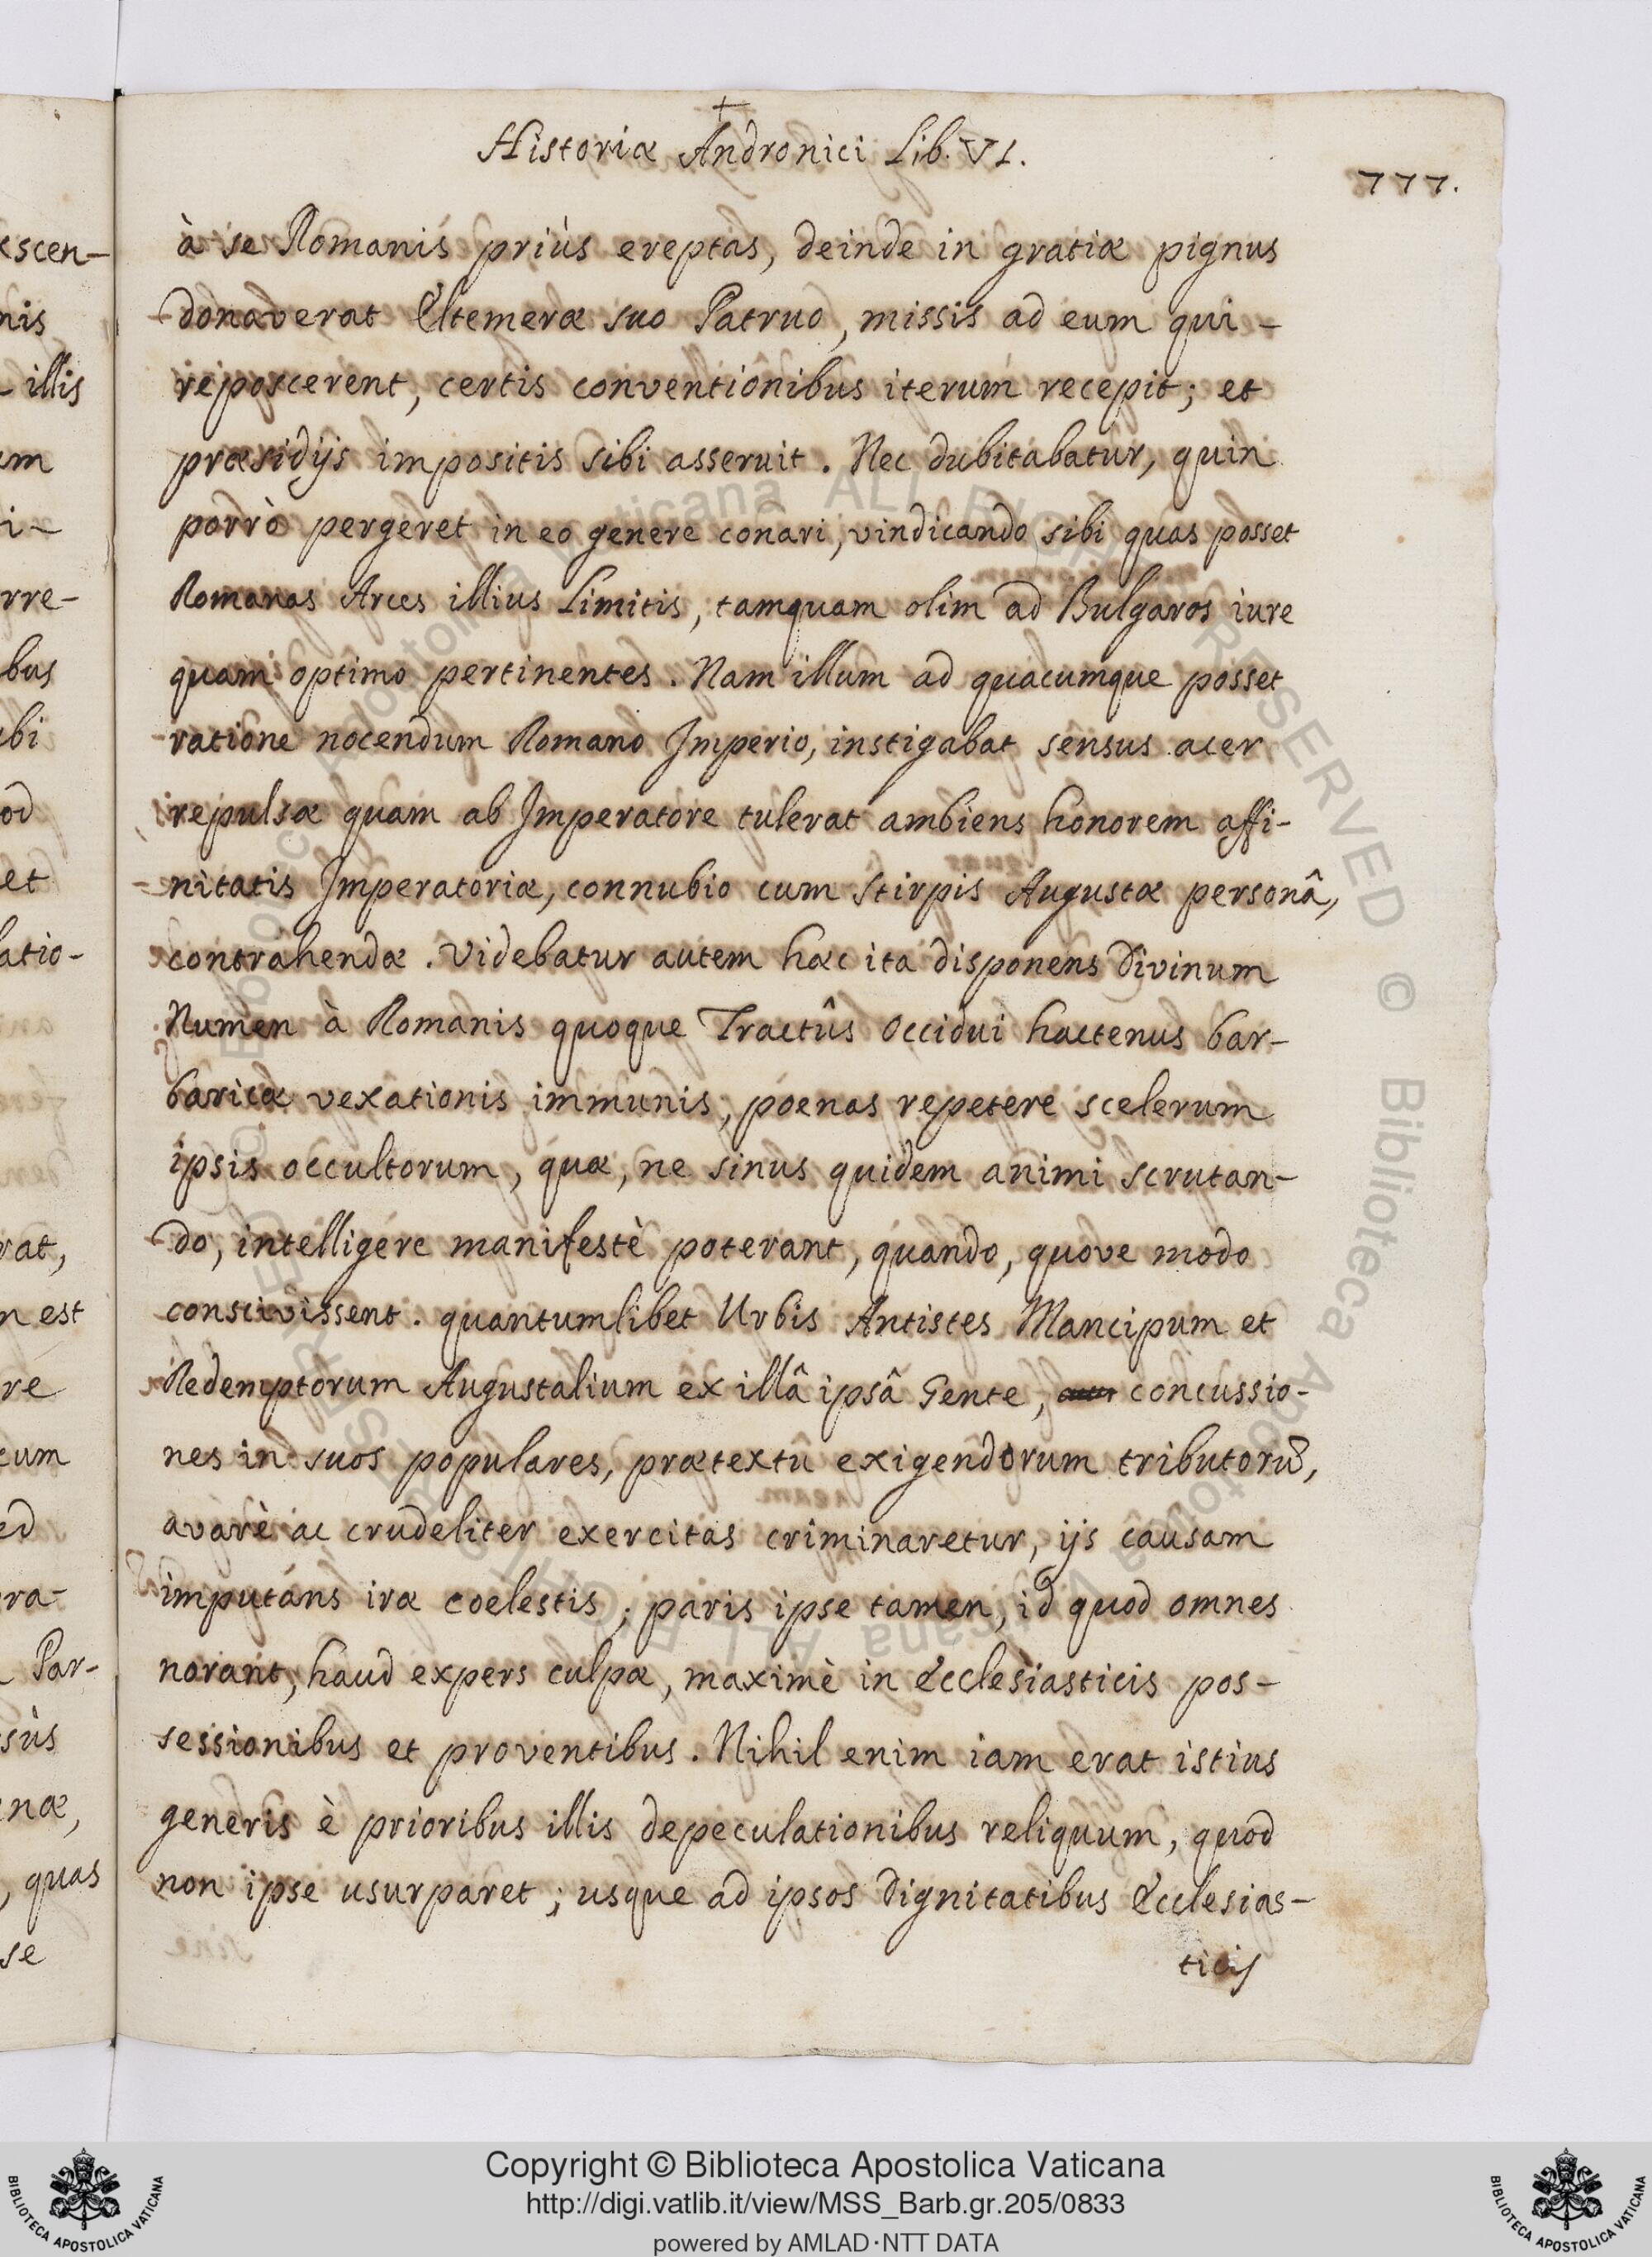 +
Historiæ Andronici Lib. VI.
777.
à se Romanis priùs ereptas, deinde in gratiæ pignus
donaverat Eltemeræ suo Patruo, missis ad eum qui
reposcerent, certis conventionibus iterum recepit; et
præsidijs impositis sibi asseruit. Nec dubitabatur, quin
porrò pergeret in eo genere conari, vindicando sibi quas posset
Romanas Arces illius Limitis, tamquam olim ad Bulgaros iure
quam optimo pertinentes. Nam illum ad quacumque posset
ratione nocendum Romano Imperio, instigabat sensus acer
repulsæ quam ab Imperatore tulerat ambiens honorem affi-
nitatis Imperatoriæ, connubio cum stirpis Augustæ personâ,
contrahendæ. Videbatur autem hæc ita disponens Divinum
Numen à Romanis quoque Tractûs Occidui hactenus bar-
baricæ vexationis immunis, pœnas repetere scelerum
ipsis occultorum, quæ, ne sinus quidem animi scrutan-
do, intelligere manifestè poterant, quando, quove modo
conscivissent. quantumlibet Urbis Antistes Mancipum et
Redemptorum Augustalium ex illâ ipsâ Gente, concussio-
nes in suos populares, prætextu exigendorum tributorũ,
avarè ac crudeliter exercitas criminaretur, ijs causam
imputans iræ cœlestis; paris ipse tamen, id quod omnes
norant, haud expers culpæ, maximè in Ecclesiasticis pos-
sessionibus et proventibus. Nihil enim iam erat istius
generis è prioribus illis depeculationibus reliquum, quod
non ipse usurparet; usque ad ipsos dignitatibus Ecclesias-
ticis
escen-
nis
illis
em
i-
rre-
bus
ubi
od
et
latio-
rat,
n est
re
cum
ed
ra-
Par-
sùs
næ,
, quas
se
Copyright © Biblioteca Apostolica Vaticana
http://digi.vatlib.it/view/MSS_Barb.gr.205/0833
powered by AMLAD·NTT DATA
BIBLIOTECA APOSTOLICA VATICANA
BIBLIOTECA APOSTOLICA VATICANA